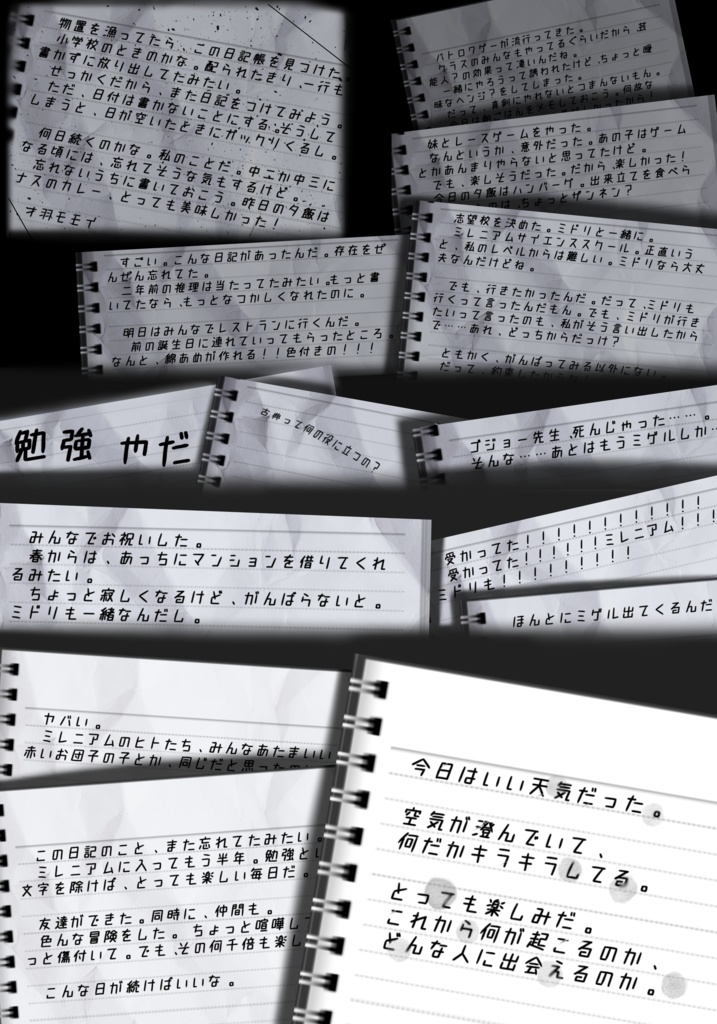 物置を漁ってたら、この日記帳を見つけた。
小学校のときのかな。配られたきり、一行も
書かずに放り出してたみたい。
せっかくだから、また日記をつけてみよう。
ただ、日付は書かないことにする。そうして
しまうと、日が空いたときにガックリくるし。
何日続くのかな。私のことだ。中二か中三に
なる頃には、忘れてそうな気もするけど。
忘れないうちに書いておこう。昨日の夕飯は
ナスのカレー、とっても美味しかった！
才羽モモイ
バトロワゲーが流行ってきた。
クラスのみんなもやってるくらいだから、芸
能人アの効果って凄いんだね。
一緒にやろうって誘われたけど、ちょっと曖
昧なヘンジアをしてしまった。
だって、真剣にやれないとつまんないもん。
妹とレースゲームをやった。
なんというか、意外だった。あの子はゲーム
とかあんまりやらないと思ってたけど。
でも、楽しそうだった。だから、楽しかった！
今日の夕飯はハンバーグ。出来立てを食べら
のは、ちょっとザンネン？
すごい。こんな日記があったんだ。存在をぜ
んぜん忘れてた。
二年前の推理は当たってたみたい。もっと書
いてたなら、もっとなつかしくなれたのに。
明日はみんなでレストランに行くんだ。
前の誕生日に連れていってもらったところ。
なんと、綿あめが作れる！！色付きの！！！
志望校を決めた。ミドリと一緒に。
ミレニアムサイエンススクール。正直いう
と、私のレベルからは難しい。ミドリなら大丈
夫なんだけどね。
でも、行きたかったんだ。だって、ミドリも
行くって言ったんだもん。でも、ミドリが行き
たいって言ったのも、私がそう言い出したから
で……あれ、どっちからだっけ？
ともかく、がんばってみる以外にない。
だって、約束したから
勉強 やだ
古典って何の役に立つの？
ゴジョー先生、死んじゃった……。
そんな……あとはもうミゲルしか…
みんなでお祝いした。
春からは、あっちにマンションを借りてくれ
るみたい。
ちょっと寂しくなるけど、がんばらないと。
ミドリも一緒なんだし。
受かってた！！！！！！！！！！！
受かってた！！！！！ミレニアム！！！
ミドリも！！！！！！！！！
ほんとにミゲル出てくるんだ
ヤバい。
ミレニアムのヒトたち、みんなあたまいい
赤いお団子の子とか、同じだと思った
この日記のこと、また忘れてたみたい。
ミレニアムに入ってもう半年。勉強とい
文字を除けば、とっても楽しい毎日だ。
友達ができた。同時に、仲間も。
色んな冒険をした。ちょっと喧嘩し
っと傷付いて。でも、その何千倍も楽し
こんな日が続けばいいな。
今日はいい天気だった。
空気が澄んでいて、
何だかキラキラしてる。
とっても楽しみだ。
これから何が起こるのか、
どんな人に出会えるのか。